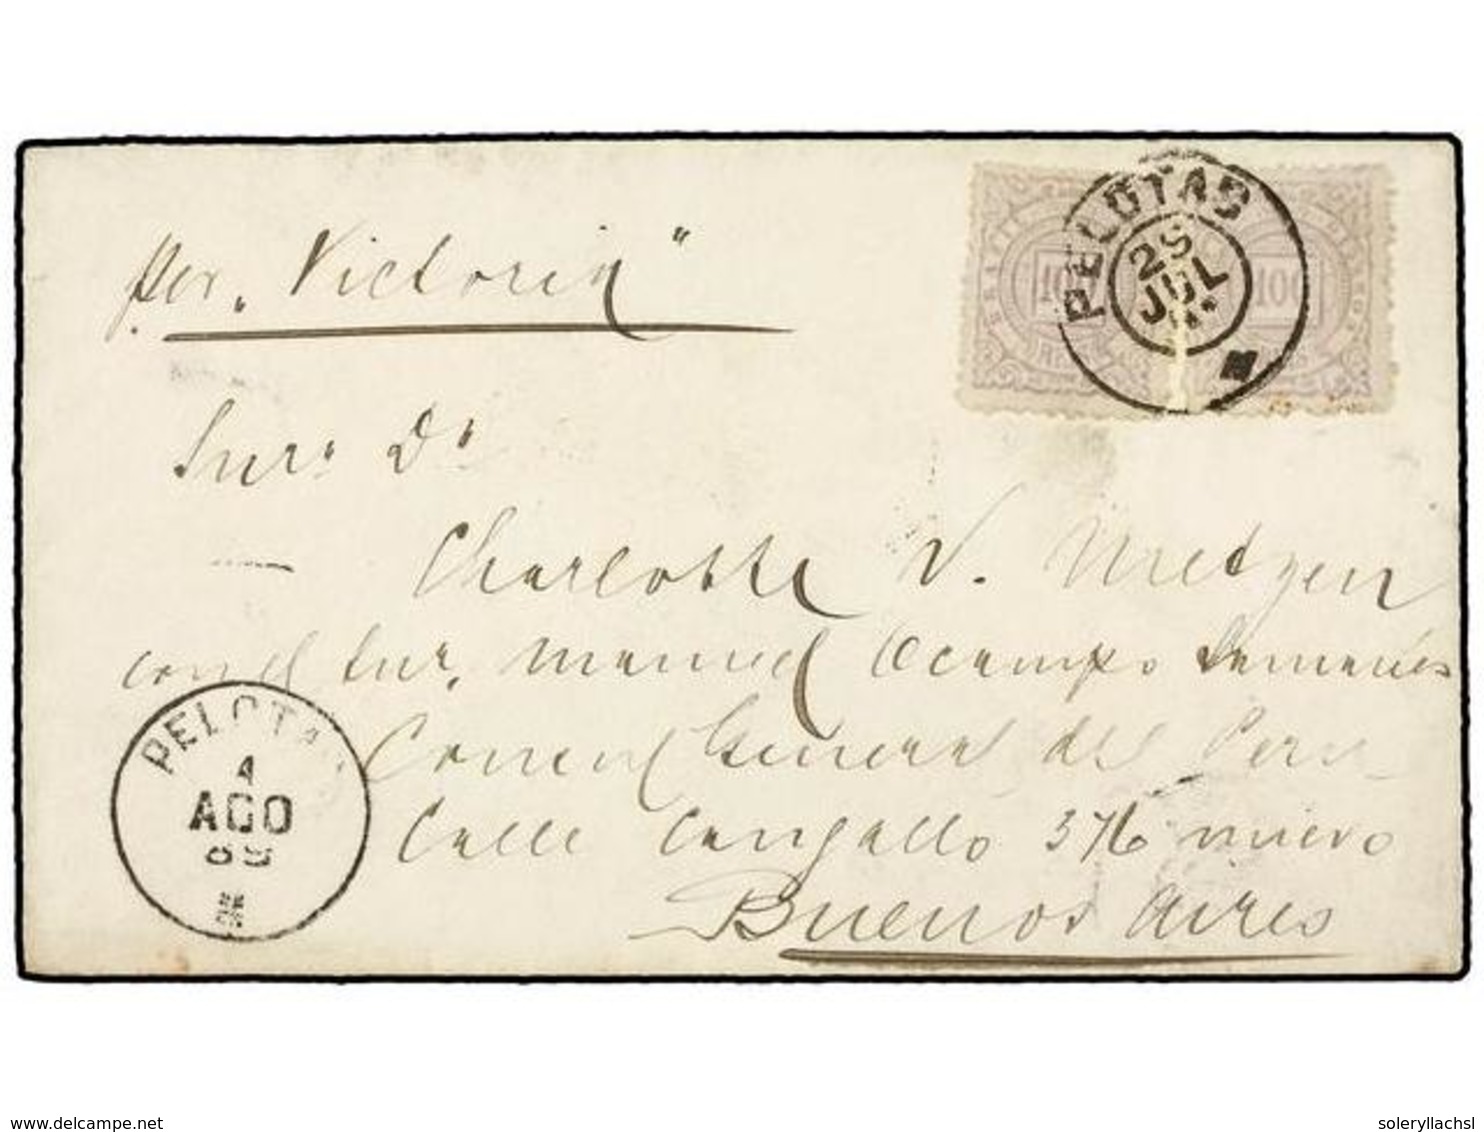 per „Victoria"
PELOTAS
28
JUL
100
Snrª Dª
Charlotte V. Metzen
con el Snr. Manuel Ocampo Samanés
Consul General del Peru
Calle Cangallo 376 nuevo
Buenos Aires
PELOTA
1
AGO
89
www.delcampe.net
soleryllachsl